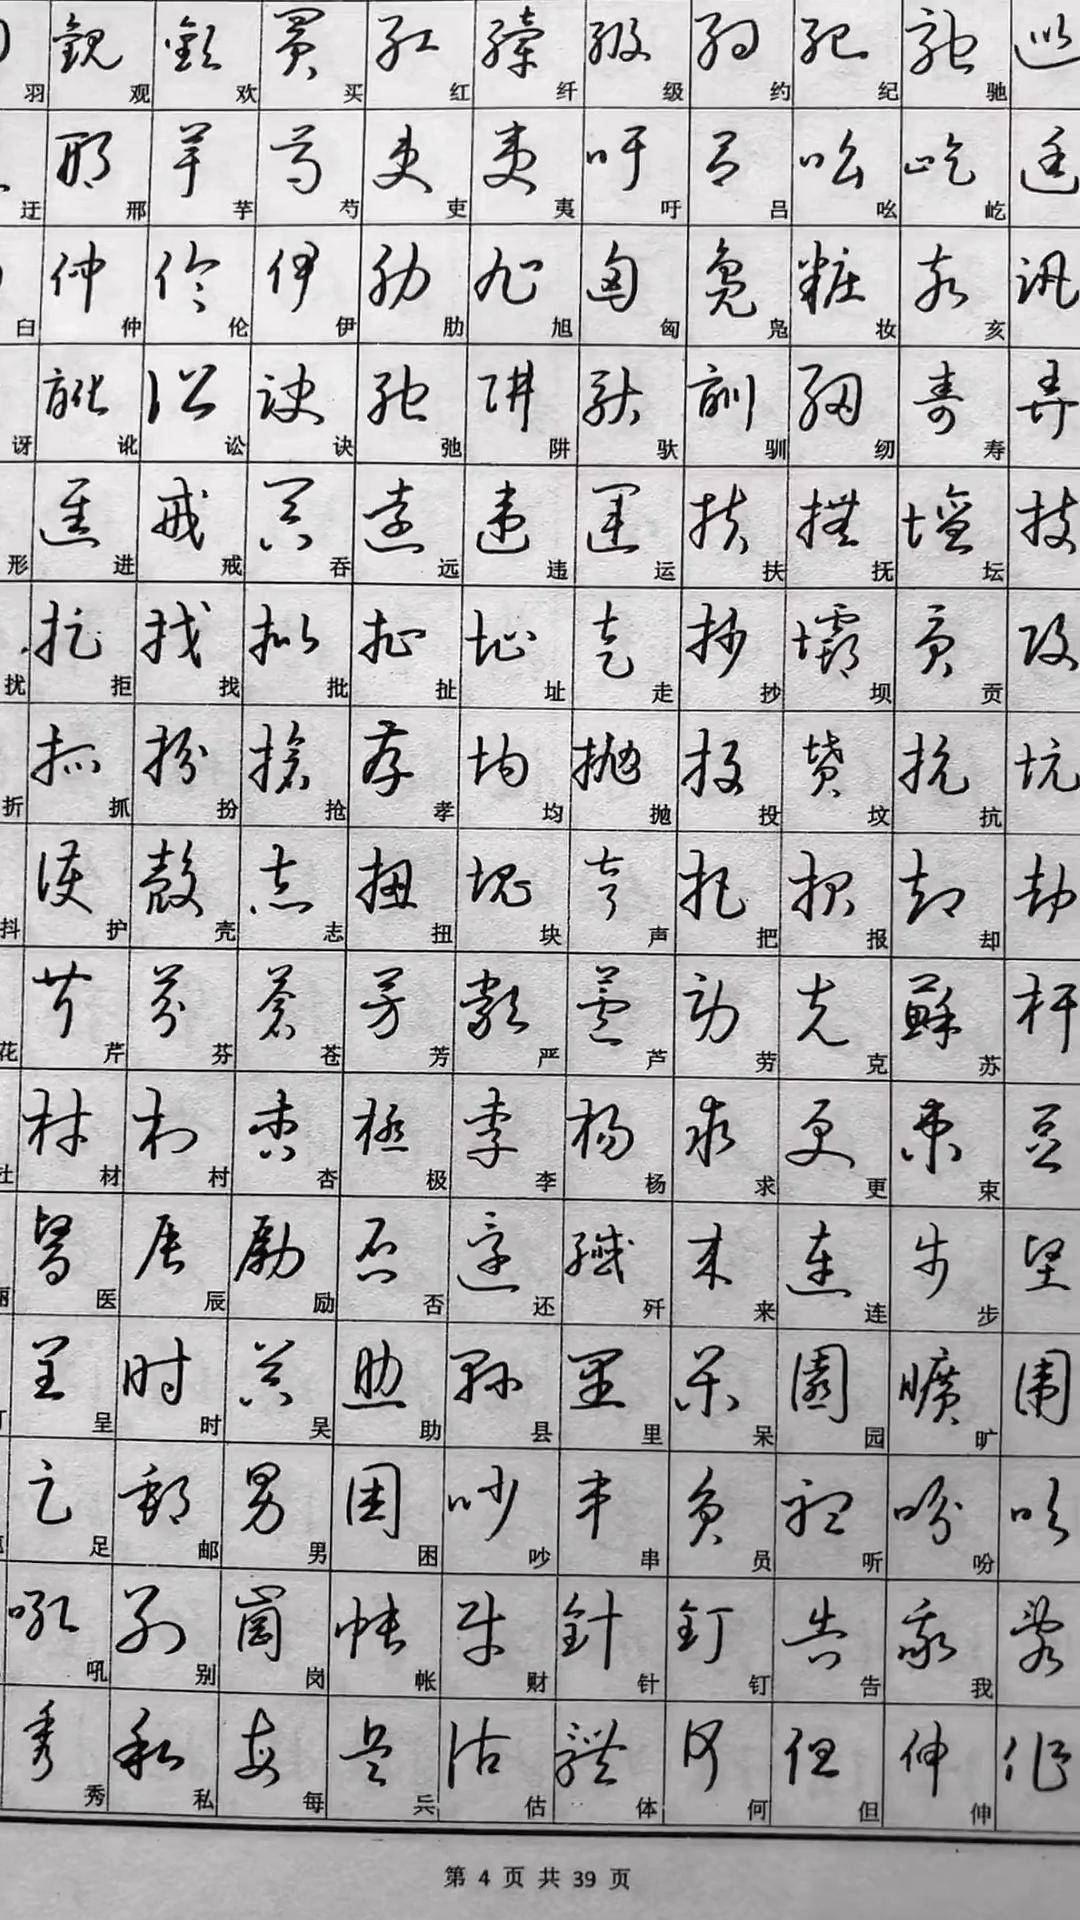 羽 观 欢 买 红 纤 级 约 纪 驰
迂 邢 芋 芍 吏 夷 吁 吕 吆 屹
臼 仲 伦 伊 肋 旭 匈 凫 妆 亥
讶 讹 讼 诀 弛 阱 驮 驯 纫 寿
形 进 戒 吞 远 违 运 扶 抚 坛
扰 拒 找 批 扯 址 走 抄 坝 贡
折 抓 扮 抢 孝 均 抛 投 坟 抗
抖 护 壳 志 扭 块 声 把 报 却
花 芹 芬 苍 芳 严 芦 劳 克 苏
杜 材 村 杏 极 李 杨 求 更 束
丽 医 辰 励 否 还 歼 来 连 步
呈 时 吴 助 县 里 呆 园 旷
足 邮 男 困 吵 串 员 听 吩
吼 别 岗 帐 财 针 钉 告 我
秀 私 每 兵 估 体 何 但 伸
第 4 页 共 39 页